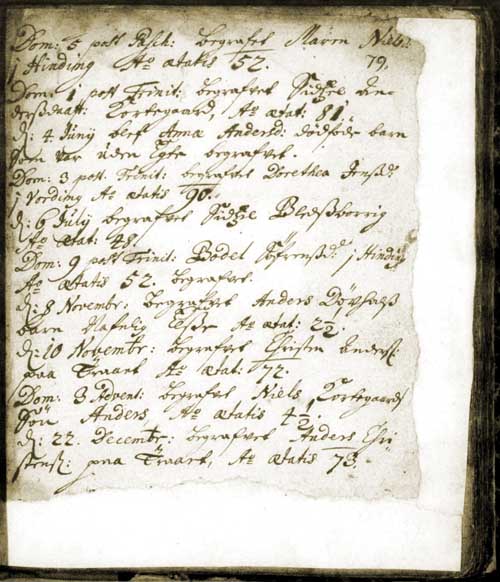 Dom: 5 post Pasch: begrafvet Maren Niels:
j Hinding Aº ætatis 52. 79.
Dom: 1 post Trinit: begrafvet Sidzel An-
dersdaatt: Kortegaard, Aº ætat: 81
d: 4 Junÿ blef Anna Andersd: dödföde barn
som var uden Egte begrafvet.
Dom: 3 post. Trinit: begrafvet Dorethea Jensd:
j Nording Aº ætatis 90.
d: 6 Julÿ begrafvet Sidzel
Aº ætat: 48.
Dom: 9 post Trinit: Bodel Sörensd: j Hinding
Aº ætatis 52. begrafvet.
d: 8 Novembr: begrafvet Anders
barn Aº ætat: 2½.
d: 10 Novembr: begrafvet Christen Anders:
paa Traant Aº ætat: 72.
Dom: 3 Advent: begrafvet Niels Kortegaards
Sön Anders Aº ætatis 4½.
d: 22. Decembr: begrafvet Anders Chri-
stens: paa Traant, Aº ætatis 73.